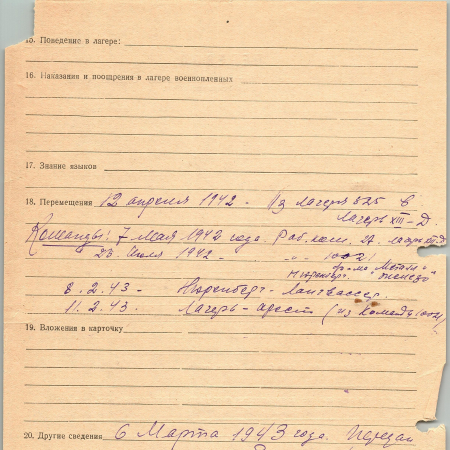 15. Поведение в лагере:
16. Наказания и поощрения в лагере военнопленных
17. Знание языков
18. Перемещения 12 апреля 1942 - Из лагеря 325 в
лагерь XIII-Д
Команды: 7 мая 1942 года. Раб. ком. 27. лагерь XIII-Д
23. Июля 1942 - " - 10021
фирма "Металл и
Нюренберг. железо"
8. 2. 43. - Нюренберг - Лангвассер.
11. 2. 43. Лагерь - арест (из команды 10021)
19. Вложения в карточку
20. Другие сведения 6 Марта 1943 года. Передан